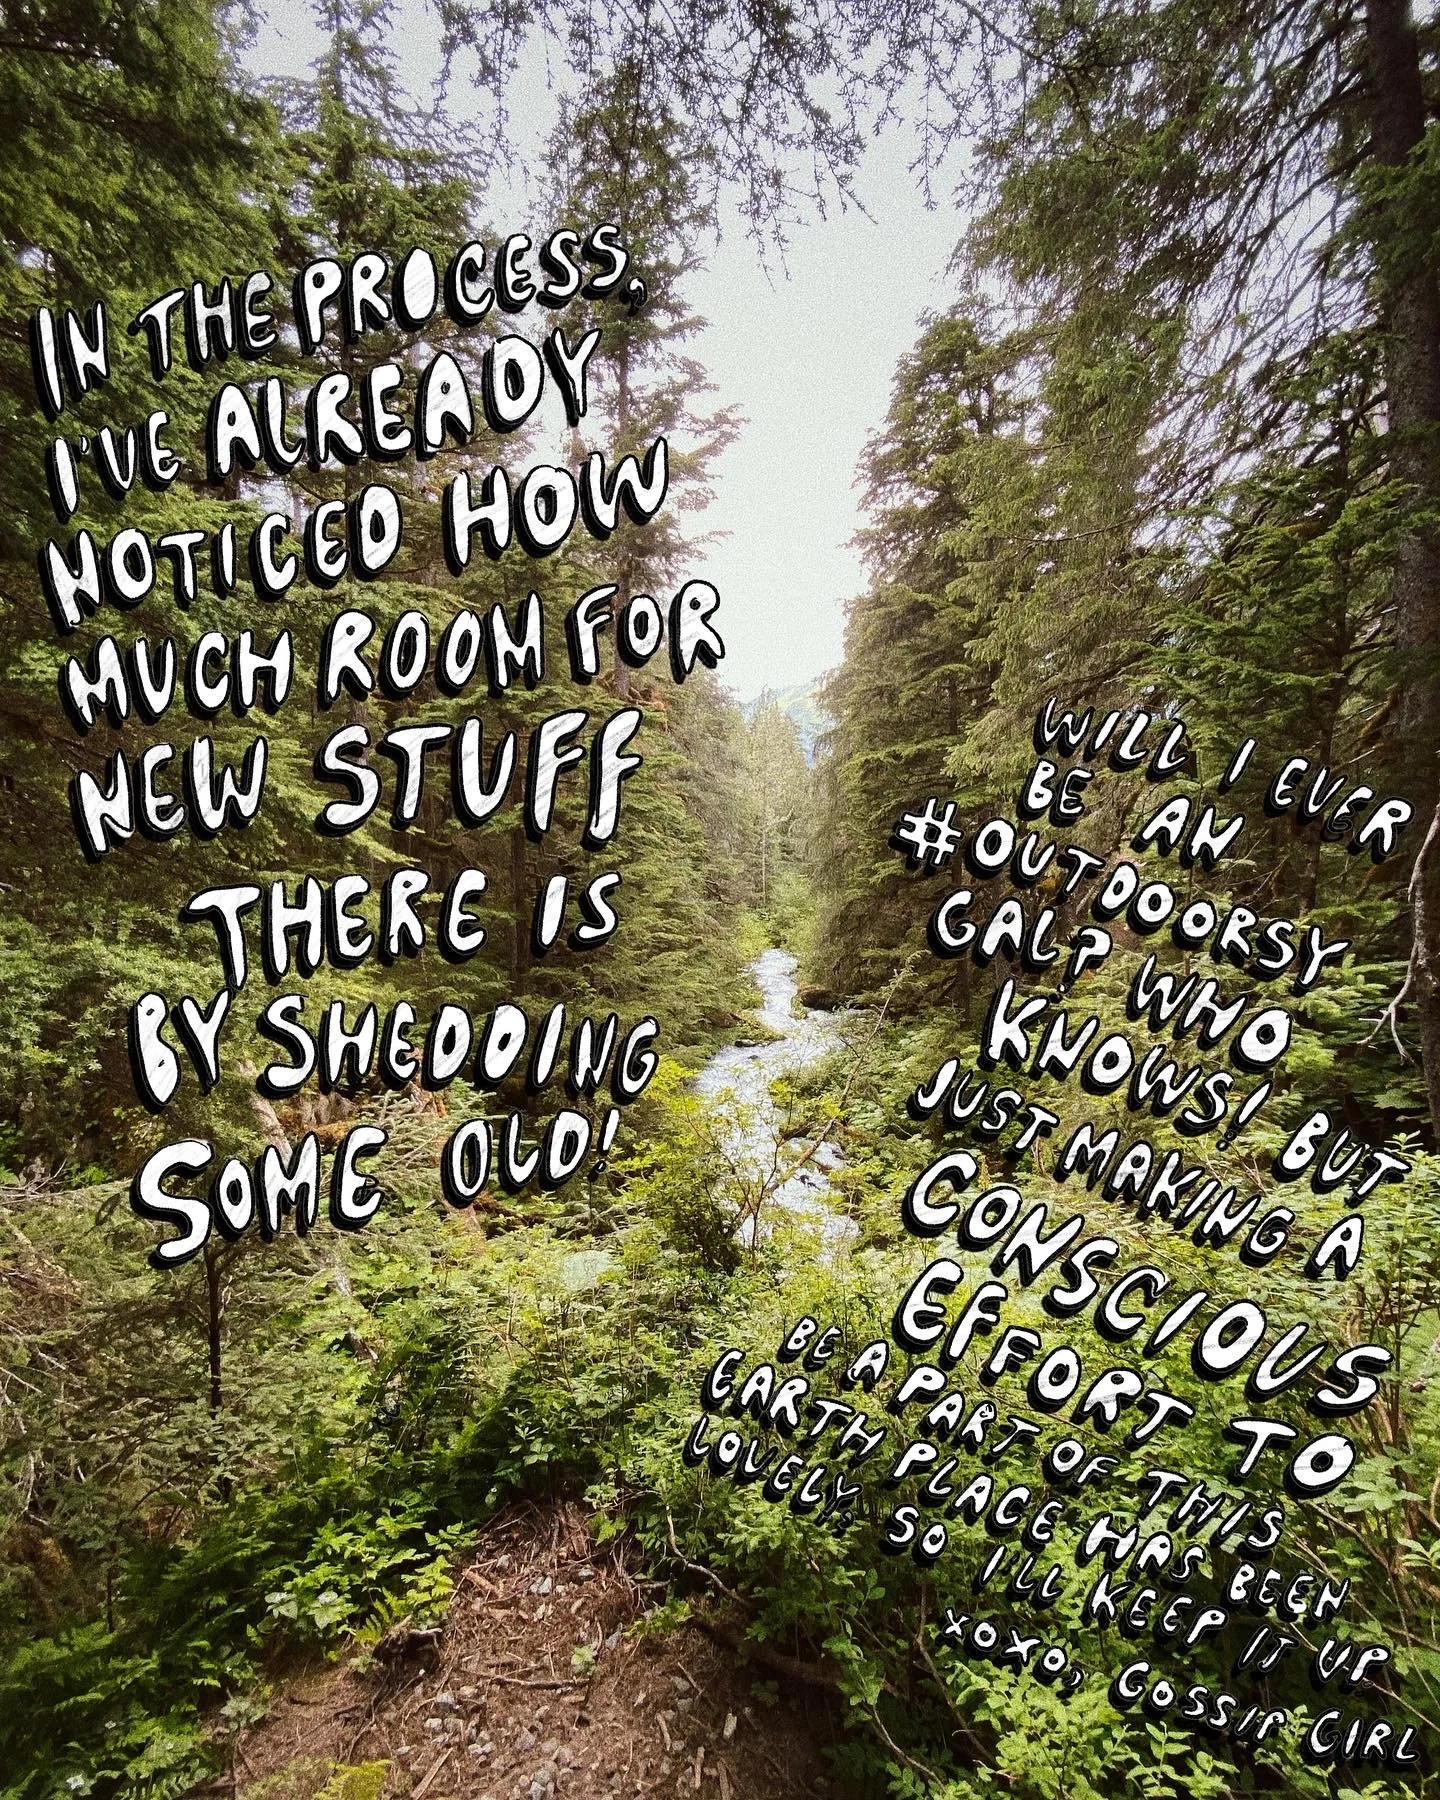 IN THE PROCESS,
I'VE ALREADY
NOTICED HOW
MUCH ROOM FOR
NEW STUFF
THERE IS
BY SHEDDING
SOME OLD!
WILL I EVER
BE AN
#OUTDOORSY
GAL? WHO
KNOWS! BUT
JUST MAKING A
CONSCIOUS
EFFORT TO
BE A PART OF THIS
EARTH PLACE HAS BEEN
LOVELY, SO I'LL KEEP IT UP.
XOXO, GOSSIP GIRL